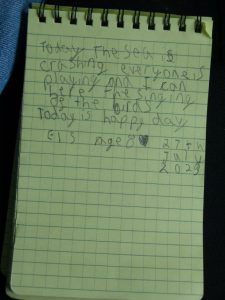 Today the sea is
crashing everyone is
playing and I can
here the singing
of the birds
Today is happy day
Age 8 27th
July
2023